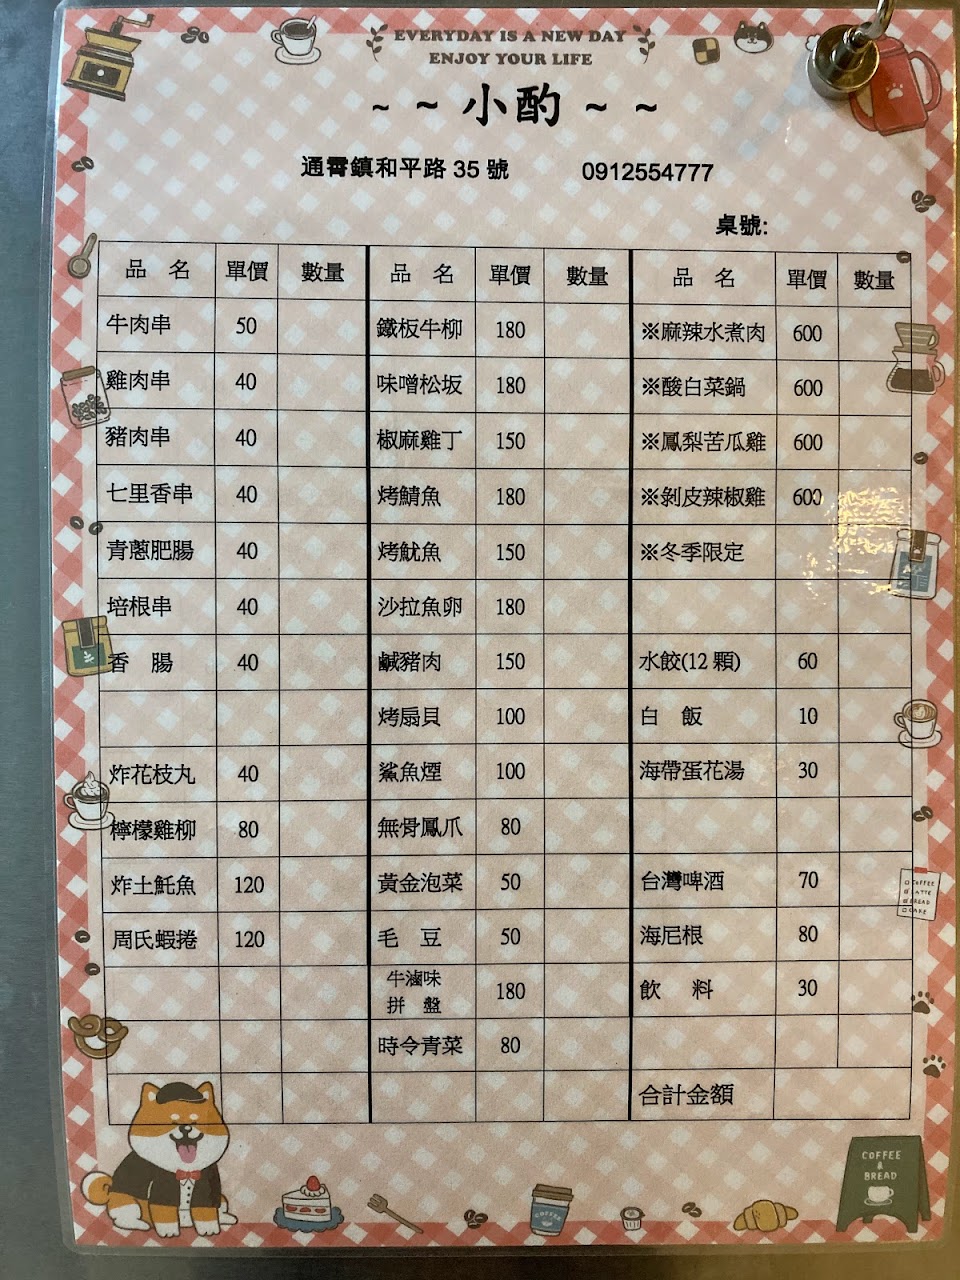 EVERYDAY IS A NEW DAY
ENJOY YOUR LIFE
~ ~ 小酌 ~ ~
通霄鎮和平路 35 號 0912554777
桌號:
品 名 單價 數量 品 名 單價 數量 品 名 單價 數量
牛肉串 50 鐵板牛柳 180 ※麻辣水煮肉 600
雞肉串 40 味噌松坂 180 ※酸白菜鍋 600
豬肉串 40 椒麻雞丁 150 ※鳳梨苦瓜雞 600
七里香串 40 烤鯖魚 180 ※剝皮辣椒雞 600
青蔥肥腸 40 烤魷魚 150 ※冬季限定
培根串 40 沙拉魚卵 180
香 腸 40 鹹豬肉 150 水餃(12 顆) 60
烤扇貝 100 白 飯 10
炸花枝丸 40 鯊魚煙 100 海帶蛋花湯 30
檸檬雞柳 80 無骨鳳爪 80
炸土魠魚 120 黃金泡菜 50 台灣啤酒 70
周氏蝦捲 120 毛 豆 50 海尼根 80
牛滷味
拼 盤 180 飲 料 30
時令青菜 80
合計金額
COFFEE
LATTE
BREAD
CAKE
COFFEE
&
BREAD
COFFEE